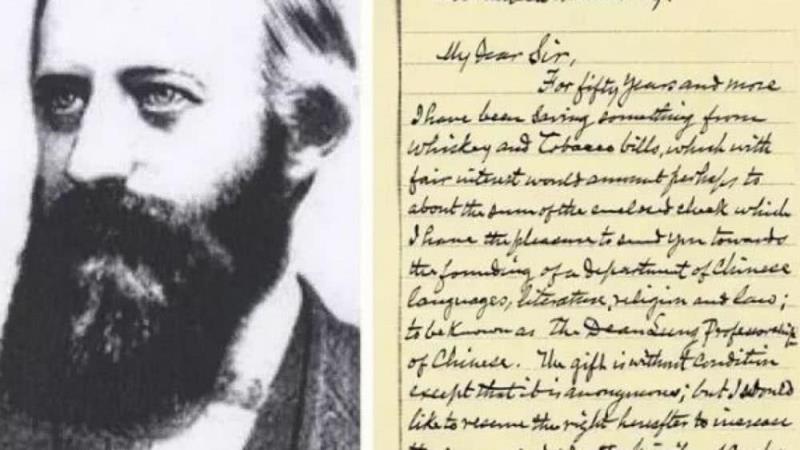 My Dear Sir,
For fifty years and more
I have been saving something from
whiskey and Tobacco bills, which with
fair interest would amount perhaps to
about the sum of the enclosed check which
I have the pleasure to send you towards
the founding of a department of Chinese
languages, literature, religion and law;
to be known as The Dean Lung Professorship
of Chinese. The gift is without condition
except that it is anonymous; but I should
like to reserve the right hereafter to increase